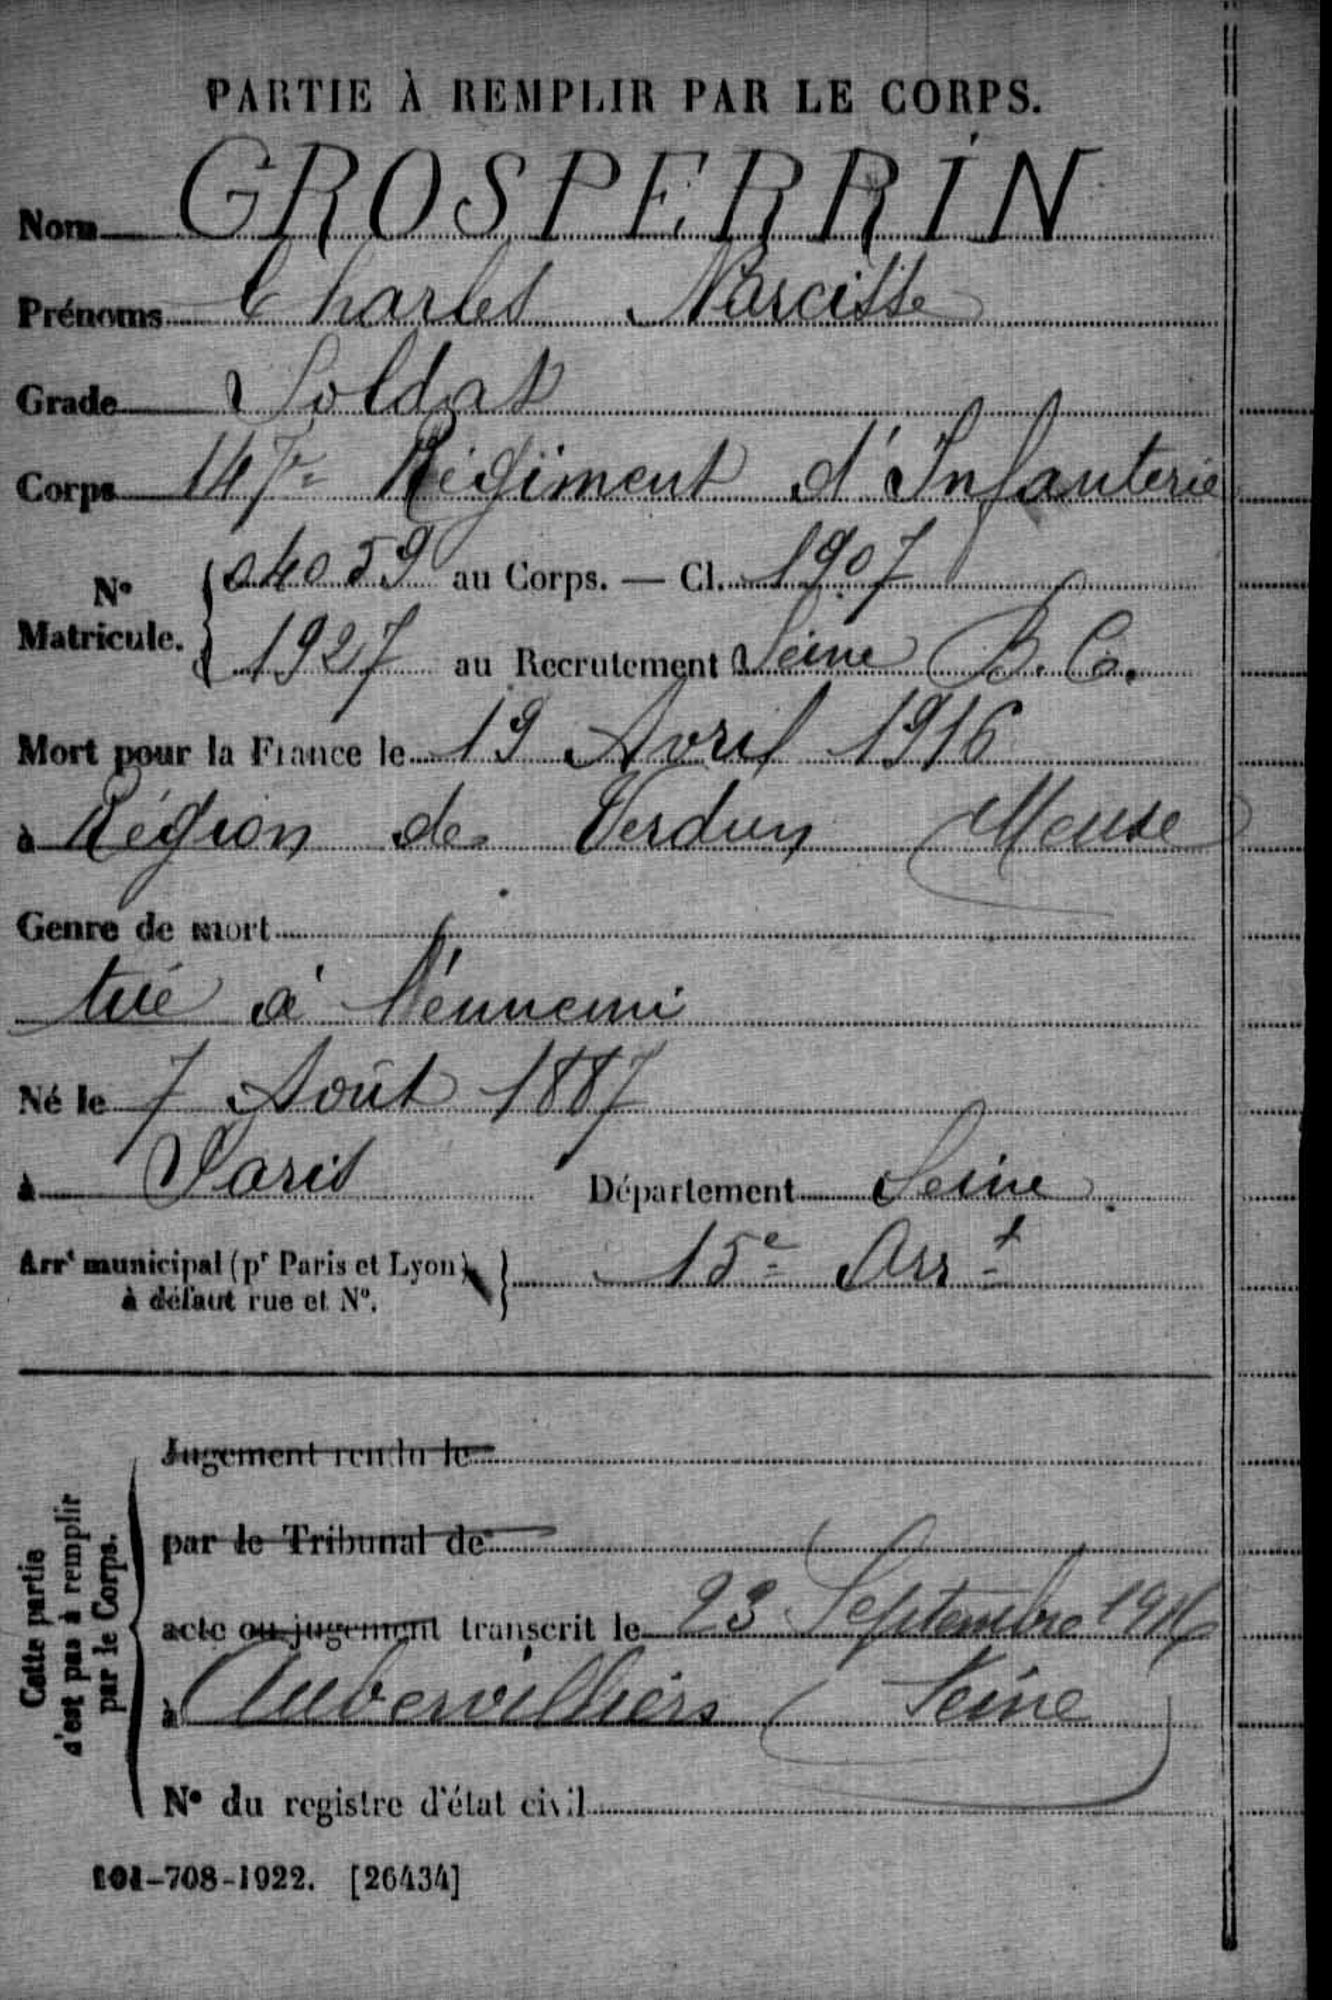 PARTIE À REMPLIR PAR LE CORPS.
Nom GROSPERRIN
Prénoms Charles Narcisse
Grade Soldat
Corps 147e Régiment d'Infanterie
N° Matricule. { 04059 au Corps. — Cl. 1907
1927 au Recrutement Seine B. C.
Mort pour la France le 19 Avril 1916
à Région de Verdun (Meuse)
Genre de mort
tué à l'énnemi
Né le 7 Août 1887
à Paris Département Seine
Arrt municipal (pr Paris et Lyon), à défaut rue et N°. } 15e Arrt
Cette partie n'est pas à remplir par le Corps.
Jugement rendu le
par le Tribunal de
acte ou jugement transcrit le 23 Septembre 1916
à Aubervilliers (Seine)
N° du registre d'état civil
101-708-1922. [26434]